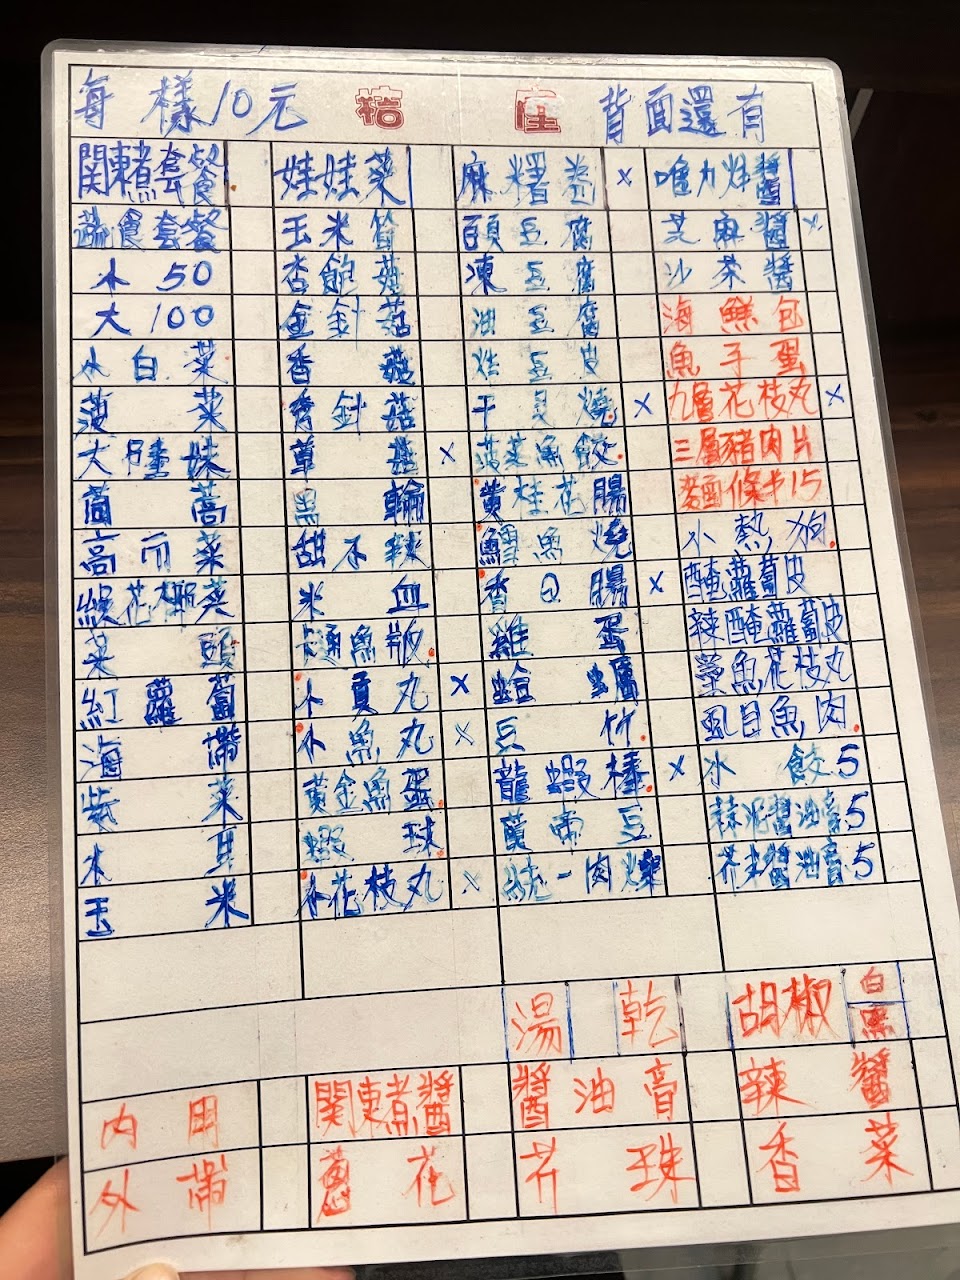 每樣10元 桔座 背面還有
関東煮套餐 娃娃菜 麻糬卷 x 唯力炸醬
蔬食套餐 玉米筍 百頁豆腐 芝麻醬 x
小50 杏鮑菇 凍豆腐 沙茶醬
大100 金針菇 油豆腐 海鮮包
小白菜 香菇 炸豆皮 魚子蛋
菠菜 秀針菇 干貝燒 x 九層花枝丸 x
大陸妹 草菇 x 菠菜魚餃 三層豬肉片
茼蒿 黑輪 黃桂花腸 麵條+15
高麗菜 甜不辣 鱈魚燒 小熱狗
綠花椰菜 米血 香Q腸 x 醃蘿蔔皮
菜頭 魚板 雞蛋 辣醃蘿蔔皮
紅蘿蔔 小貢丸 x 蛤蠣 章魚花枝丸
海帶 小魚丸 x 豆竹 虱目魚肉
紫菜 黃金魚蛋 龍蝦棒 x 水餃5
木耳 蝦球 黃帝豆 蒜泥醬油膏5
玉米 小花枝丸 x 統一肉燥 芥末醬油膏5
湯 乾 胡椒 白 黑
內用 関東煮醬 醬油膏 辣醬
外帶 蔥花 芥珠 香菜